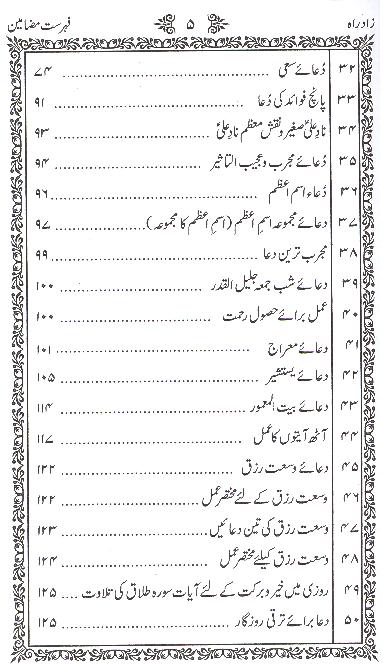 زادراہ ۵ فہرست مضامین
۳۲ دُعائے سعی ۷۴
۳۳ پانچ فوائد کی دُعا ۹۱
۳۴ نادِ علیؑ صغیر و نقش معظم نادِ علیؑ ۹۳
۳۵ دُعائے مجرب و عجیب التاثیر ۹۴
۳۶ دُعاء اسم اعظم ۹۶
۳۷ دعائے مجموعہ اسمِ اعظم (اسمِ اعظم کا مجموعہ) ۹۷
۳۸ مجرب ترین دعا ۹۹
۳۹ دعائے شب جمعہ جلیل القدر ۱۰۰
۴۰ عمل برائے حصول رحمت ۱۰۰
۴۱ دعائے معراج ۱۰۱
۴۲ دعائے یستشیر ۱۰۵
۴۳ دعائے بیت المعمور ۱۱۴
۴۴ آٹھ آیتوں کا عمل ۱۱۷
۴۵ دعائے وسعت رزق ۱۲۲
۴۶ وسعت رزق کے لئے مختصر عمل ۱۲۲
۴۷ وسعت رزق کی تین دعائیں ۱۲۳
۴۸ وسعت رزق کیلئے مختصر عمل ۱۲۴
۴۹ روزی میں خیر و برکت کے لئے آیات سورہ طلاق کی تلاوت ۱۲۵
۵۰ دعا برائے ترقی روزگار ۱۲۵